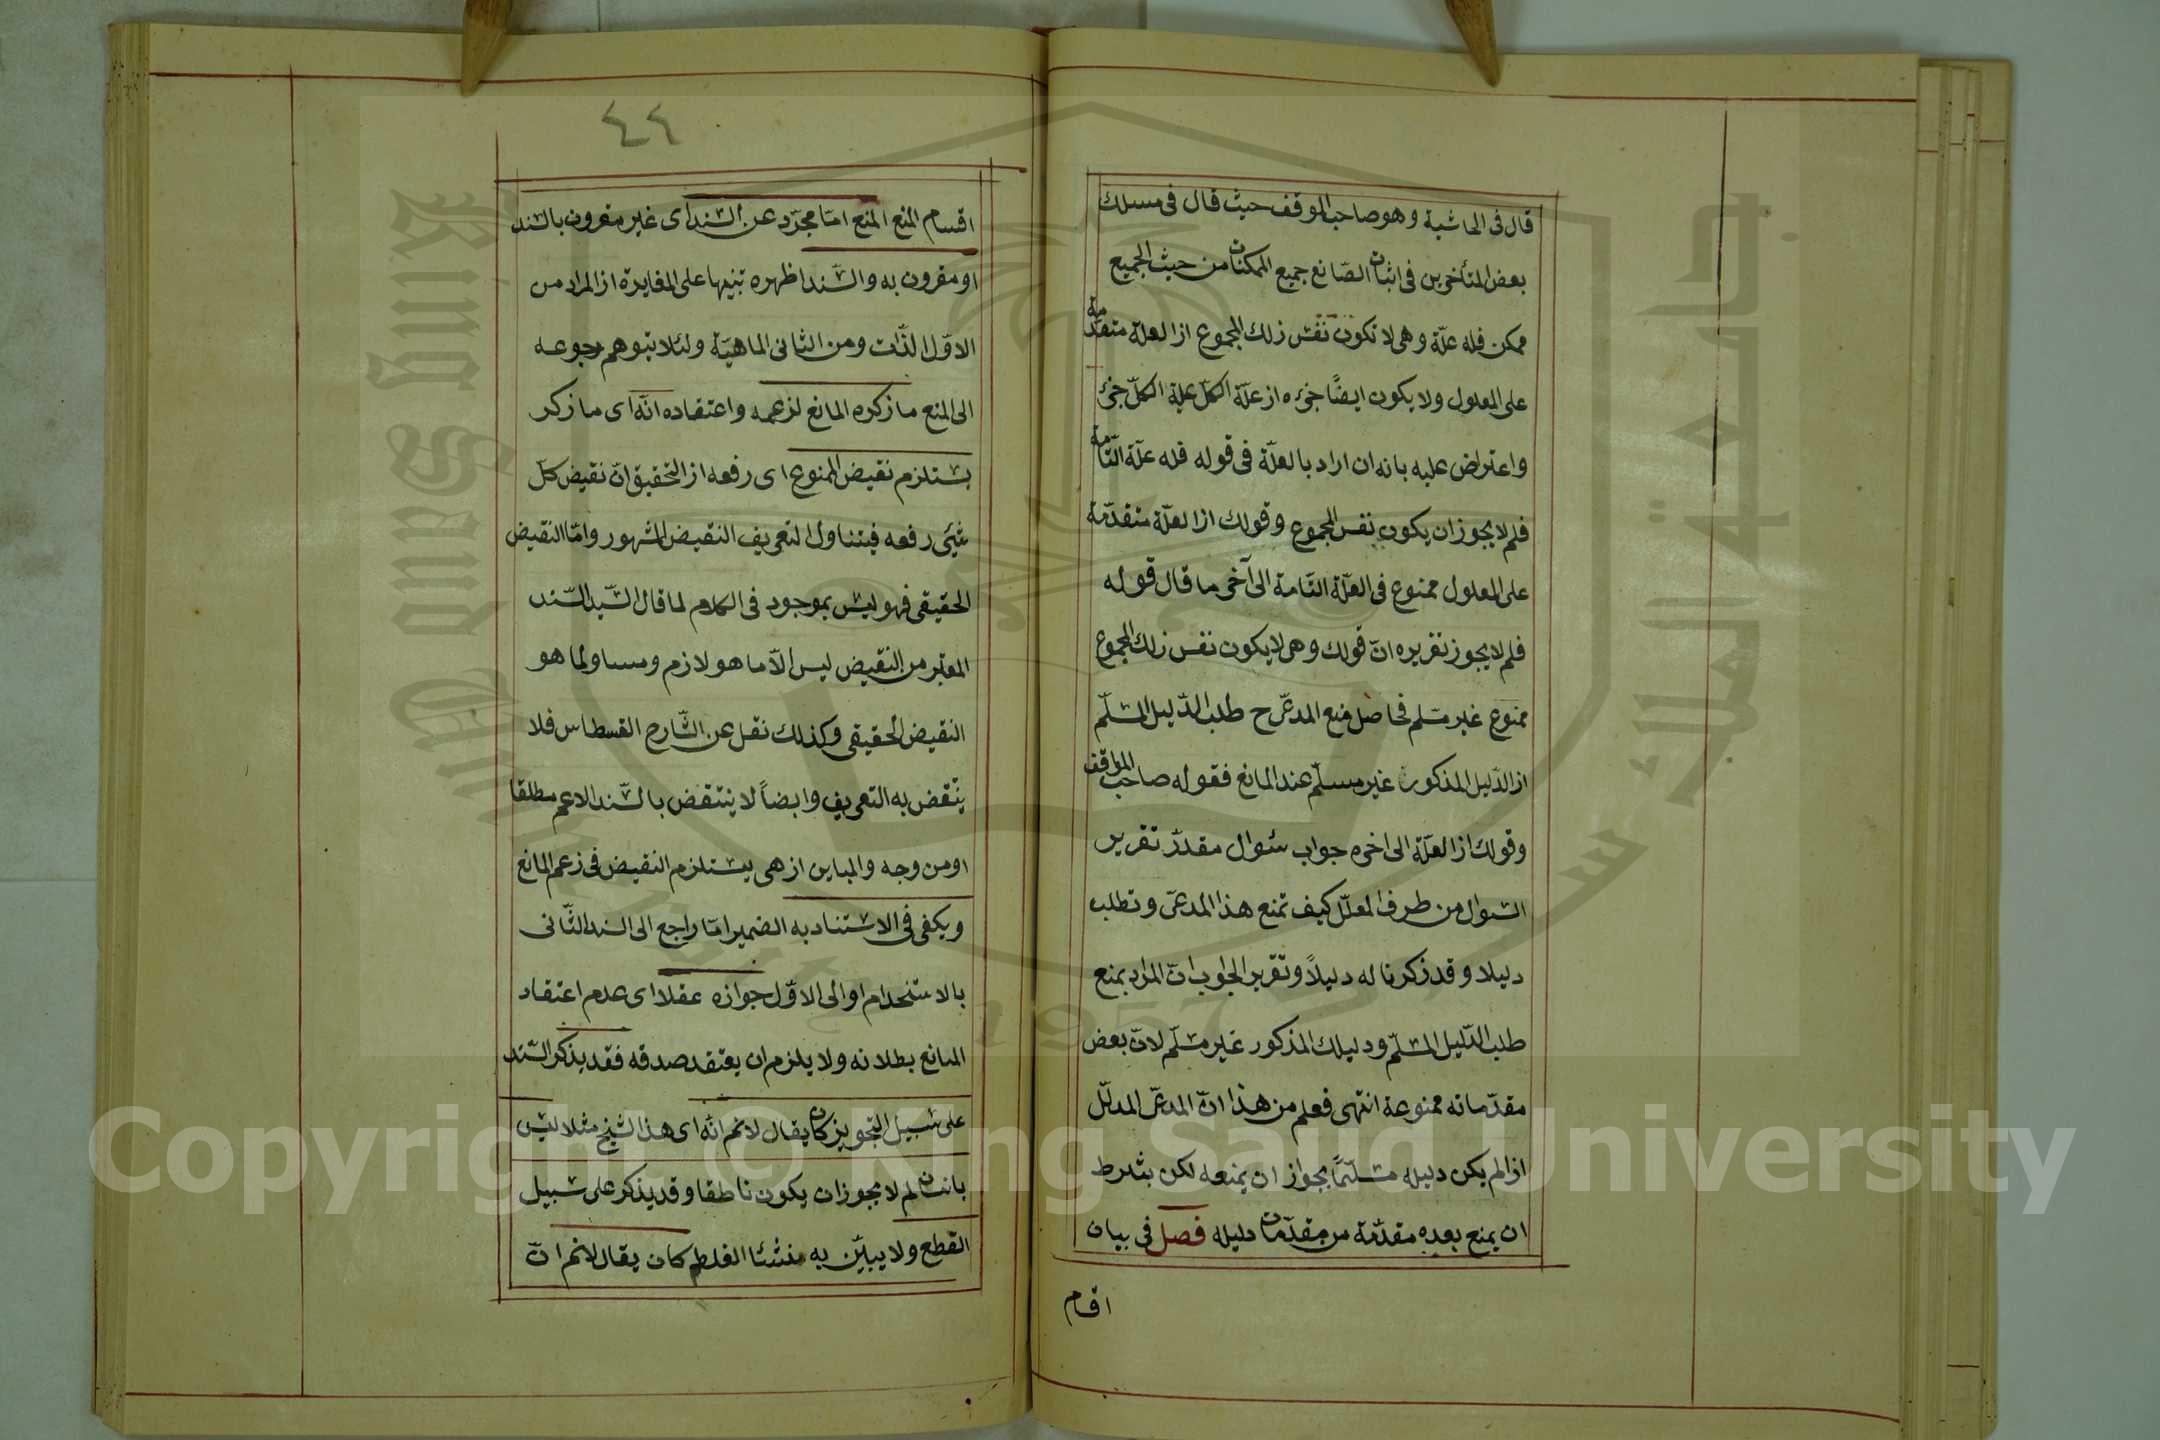 قال فى الحاشية وهو صاحب الموقف حيث قال فى مسلك
بعض المتأخرين فى اثبات الصّانع جميع الممكنات من حيث الجميع
ممكن فله علّة وهى لا تكون نفس ذلك المجموع اذ العلة متقدّمة
على المعلول ولا يكون ايضًا جزءه اذ علّة الكلّ علة الكلّ جزئ
واعترض عليه بانه ان اراد بالعلّة فى قوله فله علّة التّامة
فلم لا يجوز ان يكون نفس المجموع وقولك اذ العلّة متقدّمة
على المعلول ممنوع فى العلّة التّامة الى آخر ما قال قوله
فلم لا يجوز تقريره انّ قولك وهى لا يكون نفس ذلك المجموع
ممنوع غير مسلم فحاصل منع المدعى ح طلب الدّليل المسلّم
اذ الدّليل المذكور غير مسلّم عند المانع فقوله صاحب المواقف
وقولك اذ العلّة الى اخره جواب سئوال مقدّر تقرير
السّوال من طرف المعلّل كيف تمنع هذا المدعى وتطلب
دليلا وقد ذكرنا له دليلاً وتقرير الجواب انّ المراد بمنع
طلب الدّليل المسلّم ودليلك المذكور غير مسلّم لانّ بعض
مقدّماته ممنوعة انتهى فعلم من هذا انّ المدعى المدلّل
اذا لم يكن دليله مسلّمًا يجوز ان يمنعه لكن بشرط
ان يمنع بعده مقدّمة من مقدّمات دليله فصل فى بيان
اقسام
٤٤
اقسام المنع المنع امّا مجرّد عن السّند اى غير مقرون بالسّند
او مقرون به والسّند اظهره تنبيها على المغايرة اذ المراد من
الاوّل الذّات ومن الثانى الماهيّة ولئلا يتوهم رجوعه
الى المنع ما ذكره المانع لزعمه واعتقاده انّه اى ما ذكر
يستلزم نقيض الممنوع اى رفعه اذ التحقيق انّ نقيض كلّ
شيئ رفعه فيتناول التعريف النقيض المشهور وامّا النقيض
الحقيقى فهو ليس بموجود فى الكلام لما قال السّيد السّند
المعتبر من النقيض ليس الاّ ما هو لازم ومساو لما هو
النقيض الحقيقى وكذلك نقل عن الشّارح القسطاس فلا
ينتقض به التعريف وايضاً لا ينتقض بالسّند الاعم مطلقا
او من وجه والمباين اذ هى يستلزم النقيض فى زعم المانع
ويكفى فى الاستناد به الضمير امّا راجع الى السند الثّانى
بالاستخدام او الى الاوّل جوازه عقلا اى عدم اعتقاد
المانع بطلانه ولا يلزم ان يعتقد صدقه فقد يذكر السّند
على سبيل التجويز كان يقال لانم انّه اى هذا الشبح مثلا ليس
بانسان لم لا يجوز ان يكون ناطقا وقد يذكر على سبيل
القطع ولا يبيّن به منشئا الغلط كان يقال لانم انّ
Copyright © King Saud University
King Saud University
جامعة الملك سعود
1957